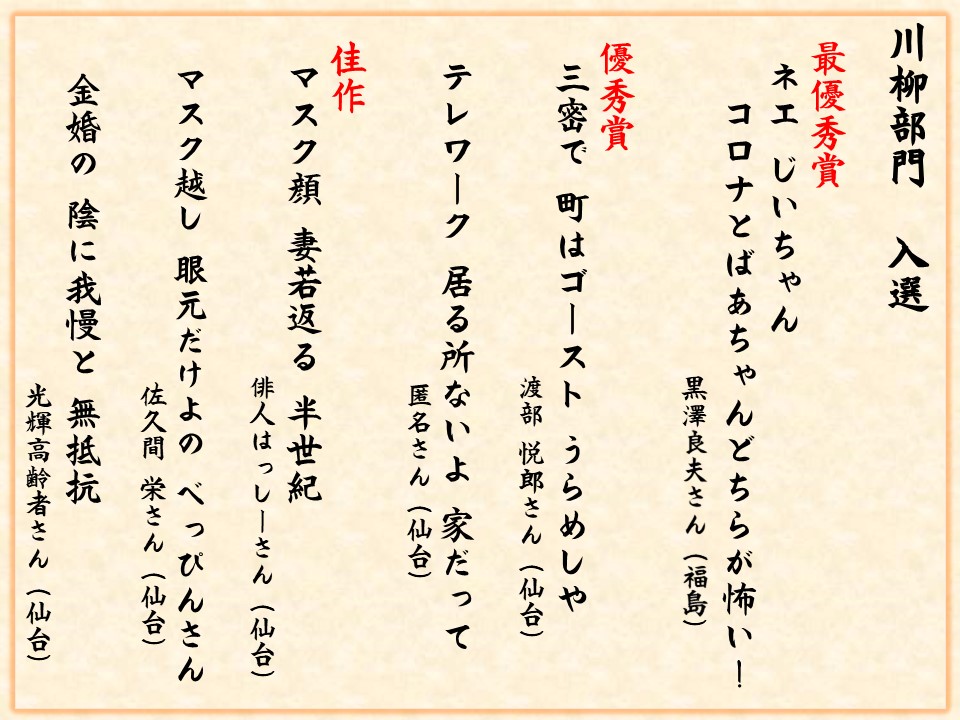 川柳部門　入選
最優秀賞
ネエ　じいちゃん
コロナとばあちゃんどちらが怖い！
黒澤良夫さん（福島）
優秀賞
三密で　町はゴースト　うらめしや
渡部　悦郎さん（仙台）
テレワーク　居る所ないよ　家だって
匿名さん（仙台）
佳作
マスク顔　妻若返る　半世紀
俳人はっしーさん（仙台）
マスク越し　眼元だけよの　べっぴんさん
佐久間　栄さん（仙台）
金婚の　陰に我慢と　無抵抗
光輝高齢者さん（仙台）